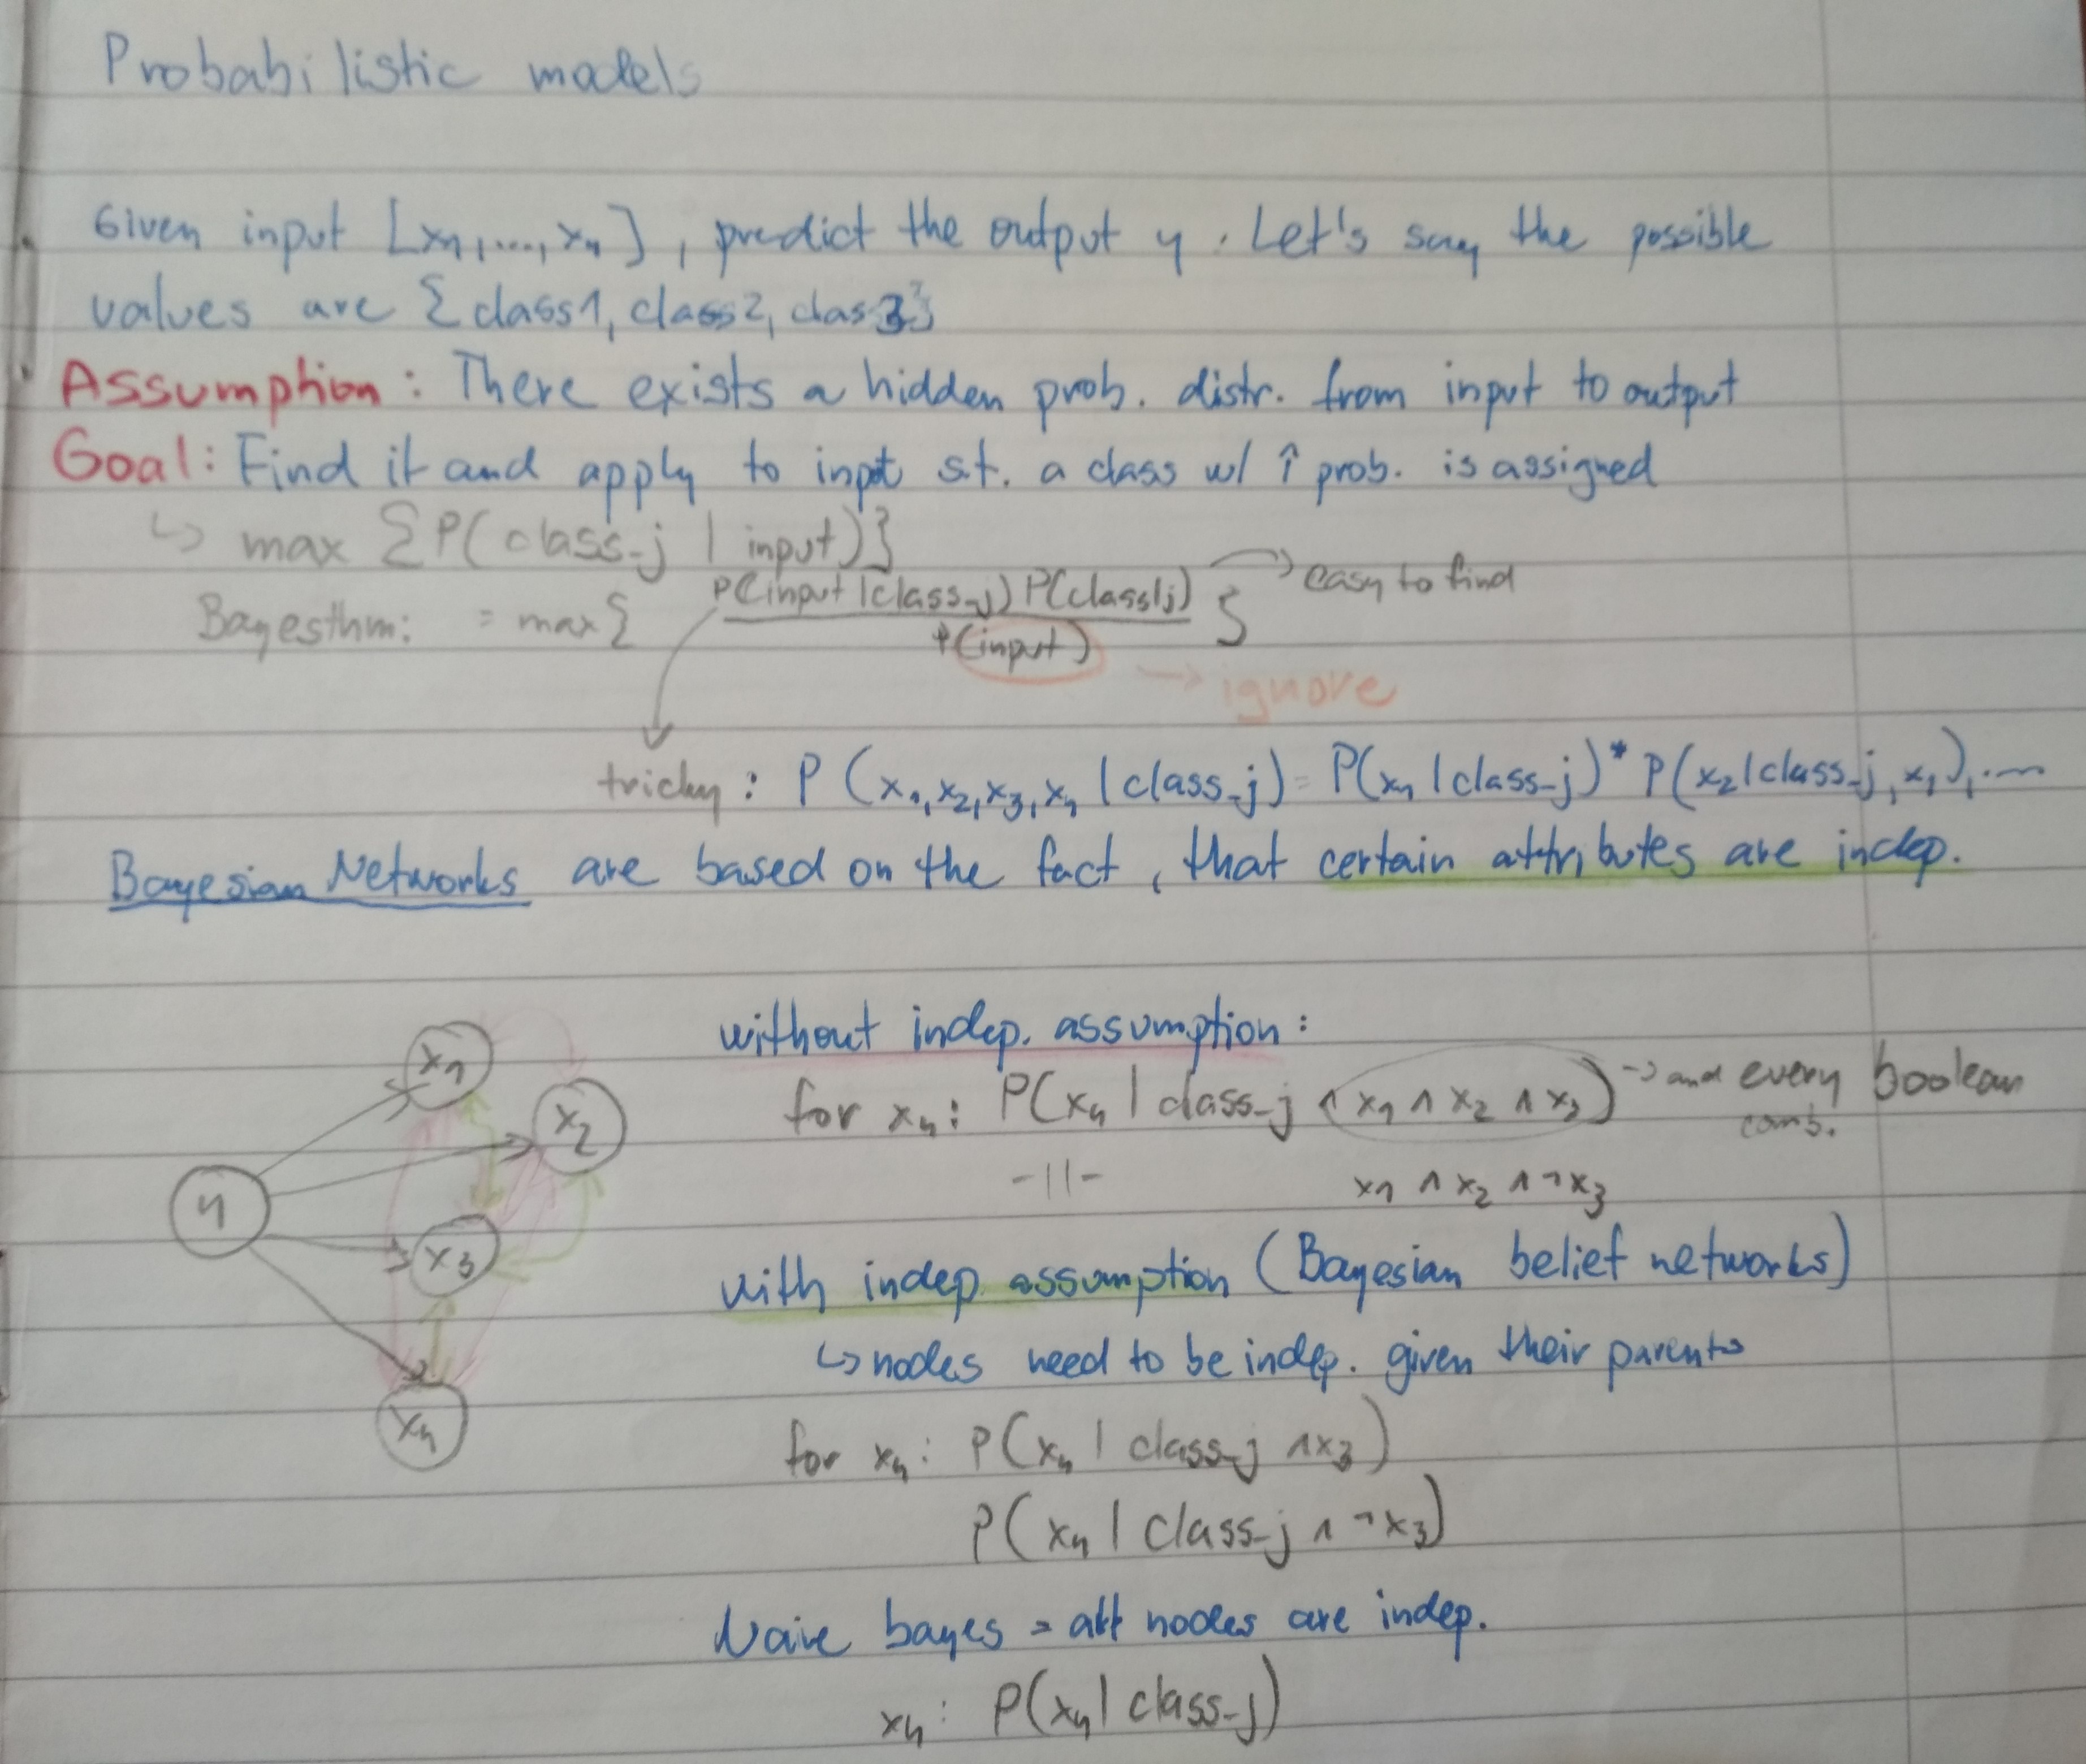 Probabilistic models
Given input [x1,...,x4], predict the output y. Let's say the possible
values are {class1, class2, clas3}
Assumption: There exists a hidden prob. distr. from input to output
Goal: Find it and apply to input s.t. a class w/ ↑ prob. is assigned
↳ max {P(class_j | input)}
Bayesthm: = max { P(input | class_j) P(class|j) / P(input) } → easy to find
→ ignore
tricky: P(x1, x2, x3, x4 | class_j) = P(x1 | class_j) * P(x2 | class_j, x1), ...
Bayesian Networks are based on the fact, that certain attributes are indep.
without indep. assumption:
for x4: P(x4 | class_j ∧ x1 ∧ x2 ∧ x3) → and every boolean
comb.
-||- x1 ∧ x2 ∧ ¬x3
with indep. assumption (Bayesian belief networks)
↳ nodes need to be indep. given their parents
for x4: P(x4 | class_j ∧ x3)
P(x4 | class_j ∧ ¬x3)
Naive bayes = att nodes are indep.
x4: P(x4 | class_j)
y
x1
x2
x3
x4